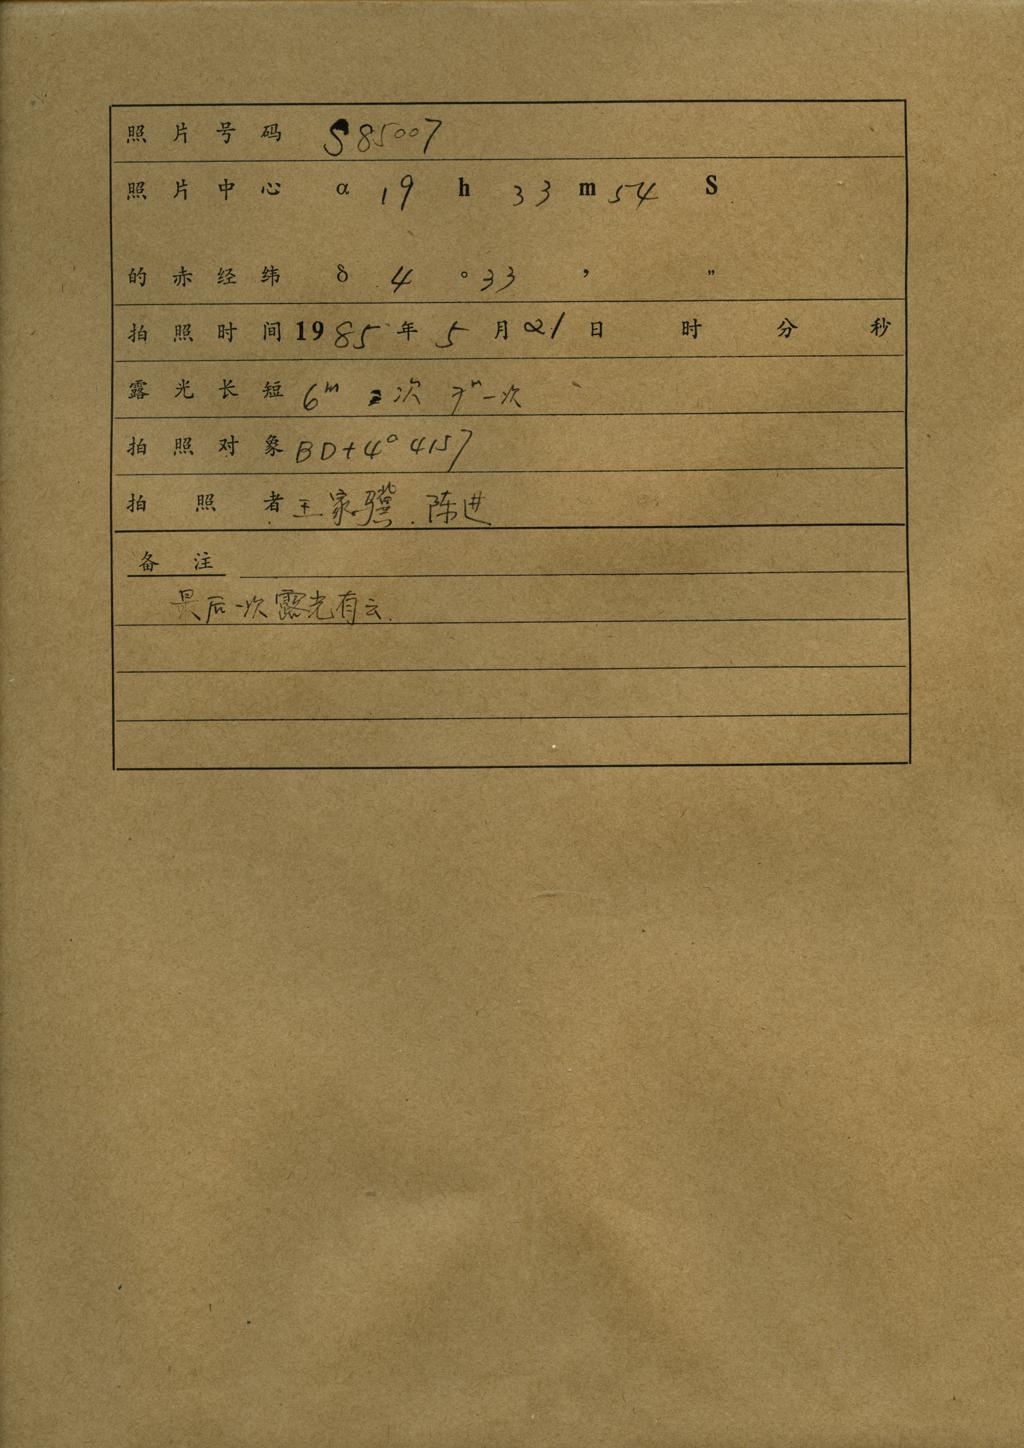 照片号码 S85007
照片中心 α 19 h 33 m 54 S
的赤经纬 δ 4 ° 33 ′ ″
拍照时间 1985年 5月21日 时 分 秒
露光长短 6m 2次 7m一次
拍照对象 BD+4° 4157
拍照者 王家骥 陈进
备注
最后一次露光有云.